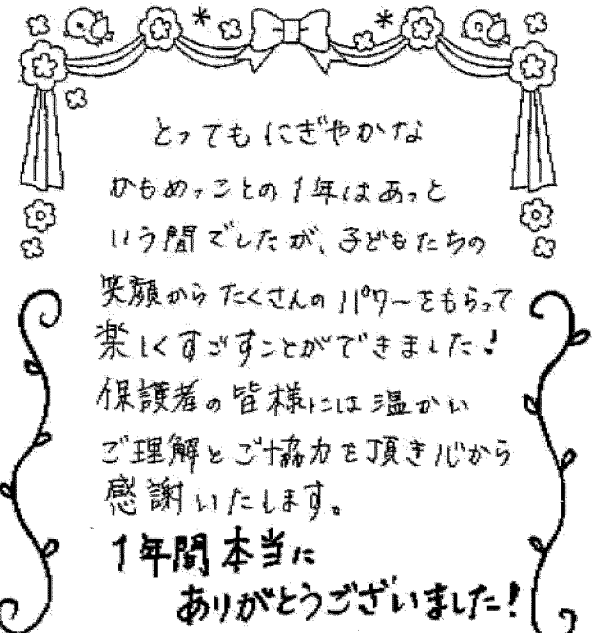 とってもにぎやかな
かもめっことの1年はあっと
いう間でしたが、子どもたちの
笑顔からたくさんのパワーをもらって
楽しくすごすことができました!
保護者の皆様には温かい
ご理解とご協力を頂き心から
感謝いたします。
1年間本当に
ありがとうございました!